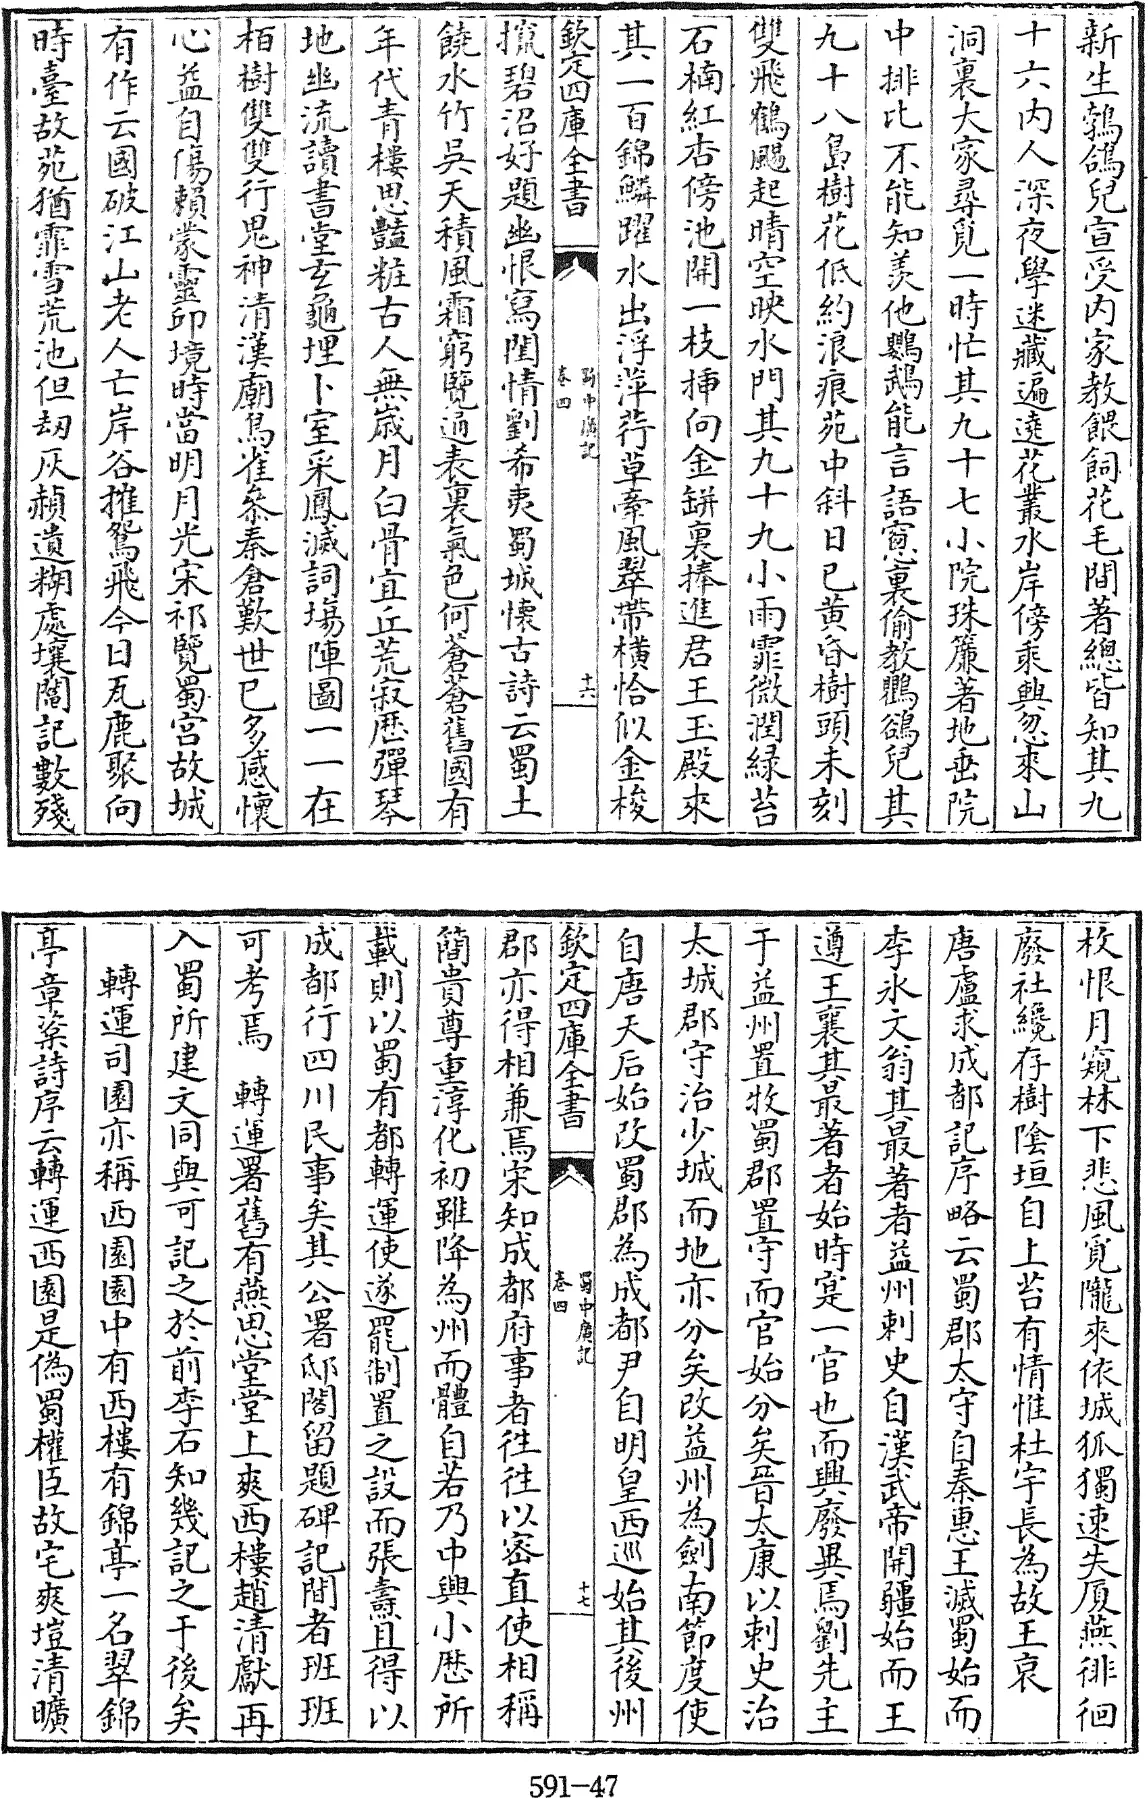 新生鵓鴿兒宣受内家教餵飼花毛間著總皆知其九
十六内人深夜學迷藏遍遶花叢水岸傍乘興忽來山
洞裏大家尋覓一時忙其九十七小院珠簾著地垂院
中排比不能知羨他鸚鵡能言語窓裏偷教鸜鵒兒其
九十八島樹花低約浪痕苑中斜日已黄昏樹頭未刻
雙飛鶴颺起晴空映水門其九十九小雨霏微潤緑苔
石楠紅杏傍池開一枝揷向金缾裏捧進君王玉殿來
其一百錦鱗躍水出浮萍荇草牽風翠帶横恰似金梭
欽定四庫全書
蜀中廣記
卷四
十六
攛碧沼好題幽恨寫閨情劉希夷蜀城懷古詩云蜀土
饒水竹吳天積風霜窮覽通表裏氣色何蒼蒼舊國有
年代青樓思豔粧古人無歳月白骨宜丘荒寂歴彈琴
地幽流讀書堂玄龜埋卜室采鳳滅詞塲陣圖一一在
栢樹雙雙行鬼神清漢廟鳥雀叅秦倉歎世已多感懷
心益自傷賴蒙靈卭境時當明月光宋祁覽蜀宫故城
有作云國破江山老人亡岸谷摧鴛飛今日瓦鹿聚向
時臺故苑猶霏雪荒池但刼灰頳遺糊處壤闊記數殘
枚恨月窺林下悲風覓隴來依城狐獨速失厦燕徘徊
廢社纔存樹隂垣自上苔有情惟杜宇長為故王哀
唐盧求成都記序略云蜀郡太守自秦惠王滅蜀始而
李氷文翁其最著者益州刺史自漢武帝開疆始而王
遵王襄其最著者始時寔一官也而興廢異焉劉先主
于益州置牧蜀郡置守而官始分矣晉太康以刺史治
太城郡守治少城而地亦分矣改益州為劍南節度使
自唐天后始改蜀郡為成都尹自明皇西巡始其後州
欽定四庫全書
蜀中廣記
卷四
十七
郡亦得相兼焉宋知成都府事者徃徃以宻直使相稱
簡貴尊重淳化初雖降為州而體自若乃中興小歴所
載則以蜀有都轉運使遂罷制置之設而張燾且得以
成都行四川民事矣其公署邸閣留題碑記間者班班
可考焉　轉運署舊有燕思堂堂上爽西樓趙清獻再
入蜀所建文同與可記之於前李石知幾記之于後矣
轉運司園亦稱西園園中有西樓有錦亭一名翠錦
亭章楶詩序云轉運西園是偽蜀權臣故宅爽塏清曠
591-47